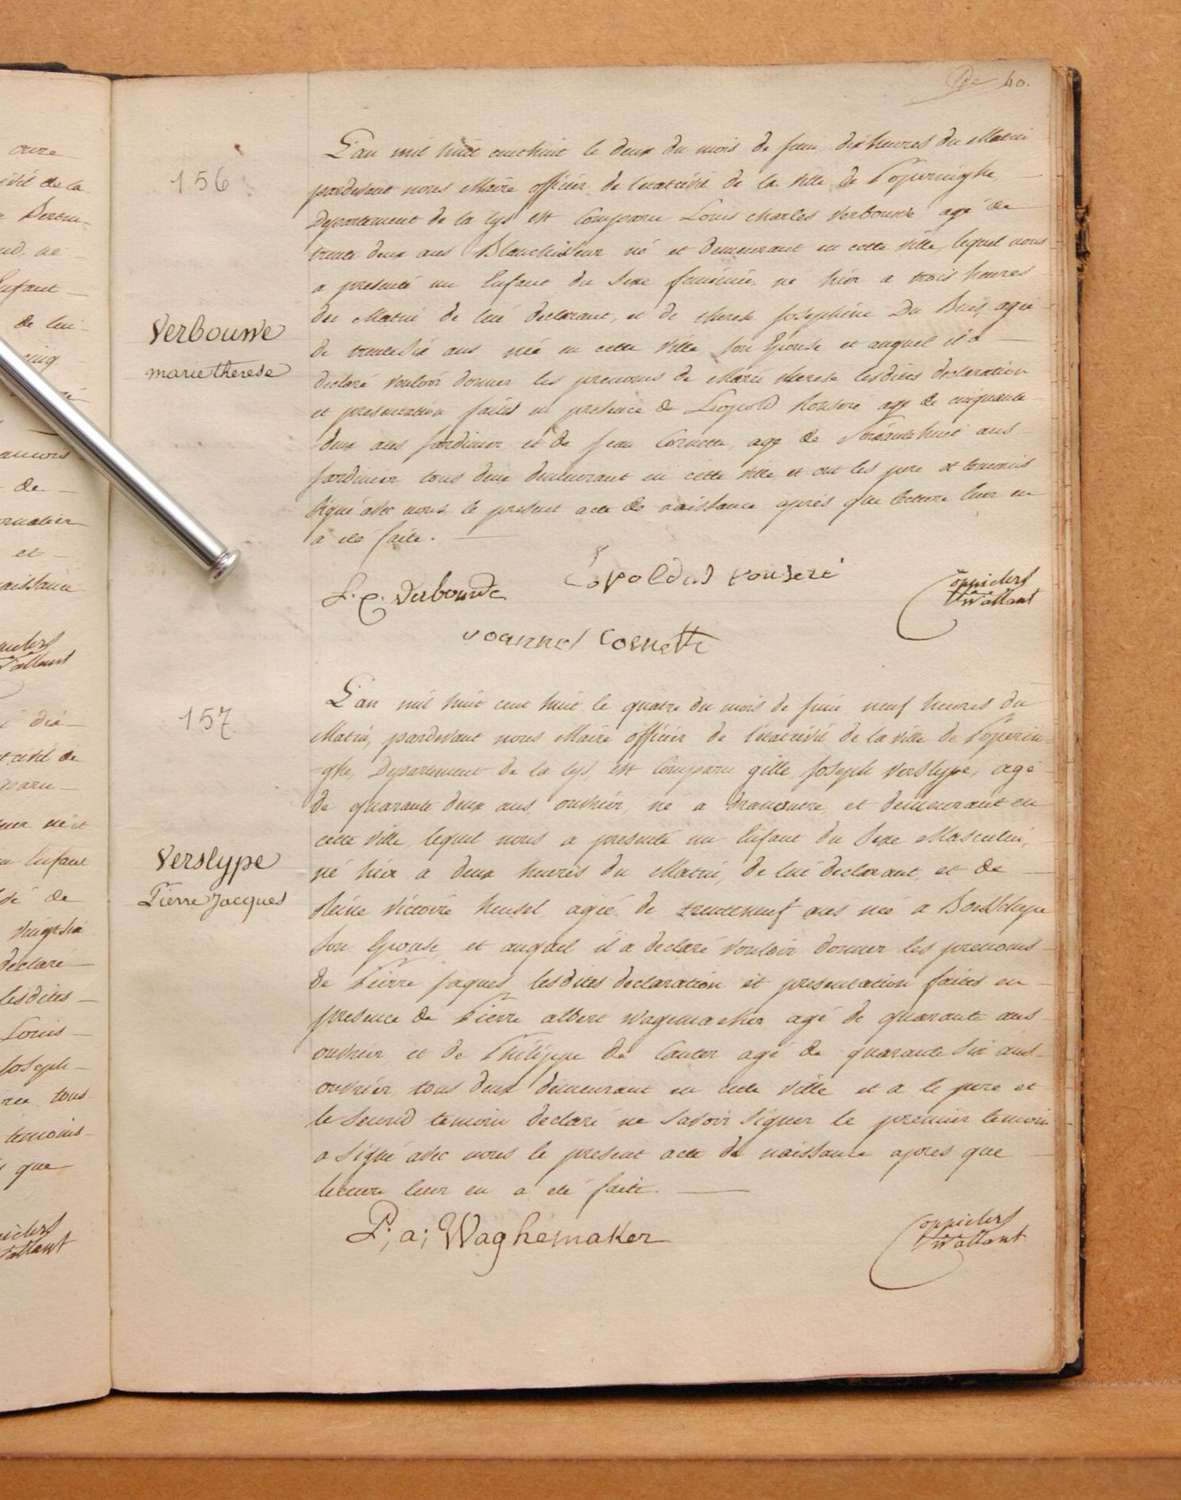 60.
156
Verbouwe
marie therese
L'an mil huit cent huit le deux du mois de juin dix heures du Matin
pardevant nous Maire officier de l'état civil de la ville de Poperinghe
Departement de la Lys est Comparu Louis Charles Verbouwe agé de
trente deux ans Blanchisseur né et demeurant en cette ville, lequel nous
a presenté un Enfant du Sexe feminin, né hier a trois heures
du Matin de lui declarant, et de therese Josephine Du Buis agée
de trente six ans née en cette ville son Epouse et auquel il a
declaré vouloir donner les prenoms de Marie therese lesdites declaration
et presentation faites en presence de Leopold age de cinquante
deux ans jardinier et de jean Cornette age de ans
jardinier tous deux demeurant en cette ville et ont les pere et temoins
signé avec nous le present acte de naissance après que lecture leur en
a eté faite.
L. C. Verbouwe
Joannes Cornette
157
Verslype
Pierre Jacques
L'an mil huit cent huit le quatre du mois de juin neuf heures du
Matin, pardevant nous Maire officier de l'état civil de la ville de Poperin-
-ghe, Departement de la Lys, est Comparu gille joseph Verslype, agé
de quarante deux ans ouvrier, né a et demeurant en
cette ville lequel nous a presenté un Enfant du Sexe Masculin,
né hier a deux heures du Matin, de lui declarant et de
Victoire agée de trente neuf ans née a
son Epouse et auquel il a declaré vouloir donner les prenoms
de Pierre jaques, lesdites declaration et presentation faites en
presence de Pierre albert Wagemacker agé de quarante ans
ouvrier et de Philippe de Canter age de quarante six ans
ouvrier tous deux demeurant en cette ville et a le pere et
le second temoin declaré ne savoir signer le premier temoin
a signé avec nous le present acte de naissance apres que
lecture leur en a eté faite.
P: a: Waghemaker